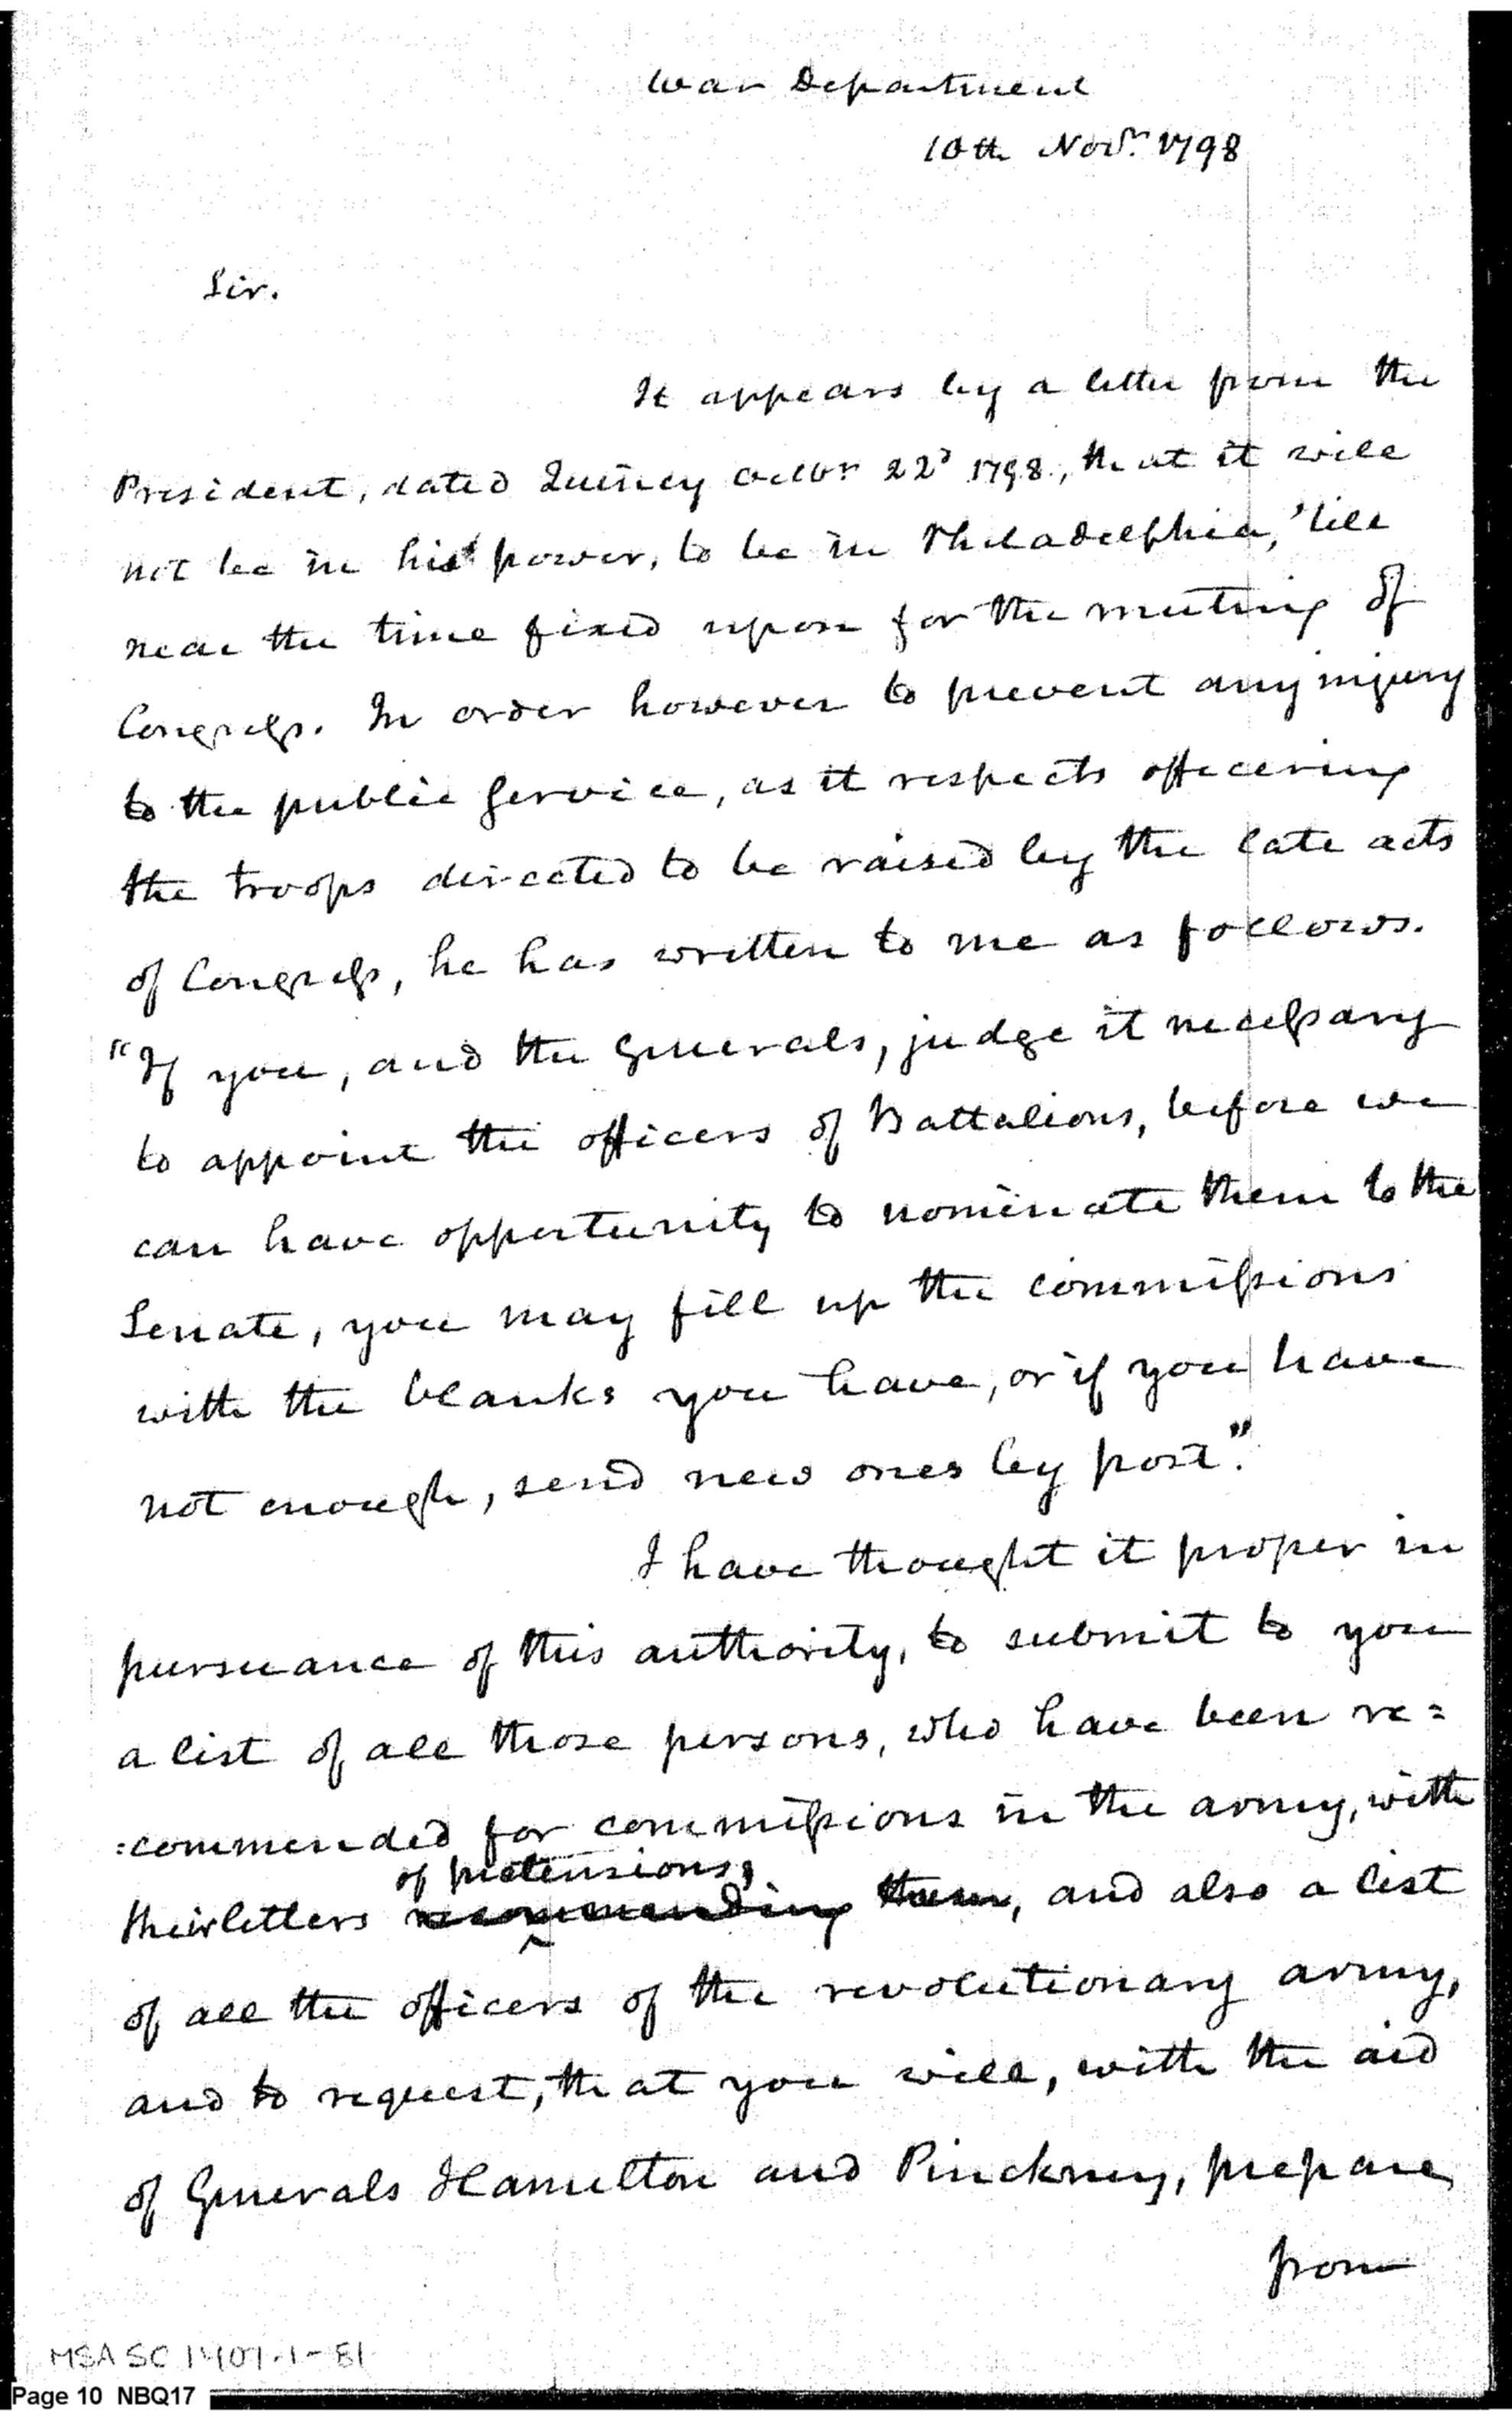 War Department
10th Novr. 1798
Sir.
It appears by a letter from the
President, dated Quincy Octbr 22d 1798, that it will
not be in his power, to be in Philadelphia, 'till
near the time fixed upon for the meeting of
Congress. In order however to prevent any injury
to the public service, as it respects officering
the troops directed to be raised by the late acts
of Congress, he has written to me as follows.
"If you, and the Generals, judge it necessary
to appoint the officers of Battalions, before we
can have opportunity to nominate them to the
Senate, you may fill up the commissions
with the blanks you have, or if you have
not enough, send new ones by post."
I have thought it proper in
pursuance of this authority, to submit to you
a list of all those persons, who have been re=
=commended for commissions in the army, with
of pretensions,
their letters recommending them, and also a list
of all the officers of the revolutionary army,
and to request, that you will, with the aid
of Generals Hamilton and Pinckney, prepare
from
MSA SC 1407-1-81
Page 10 NBQ17